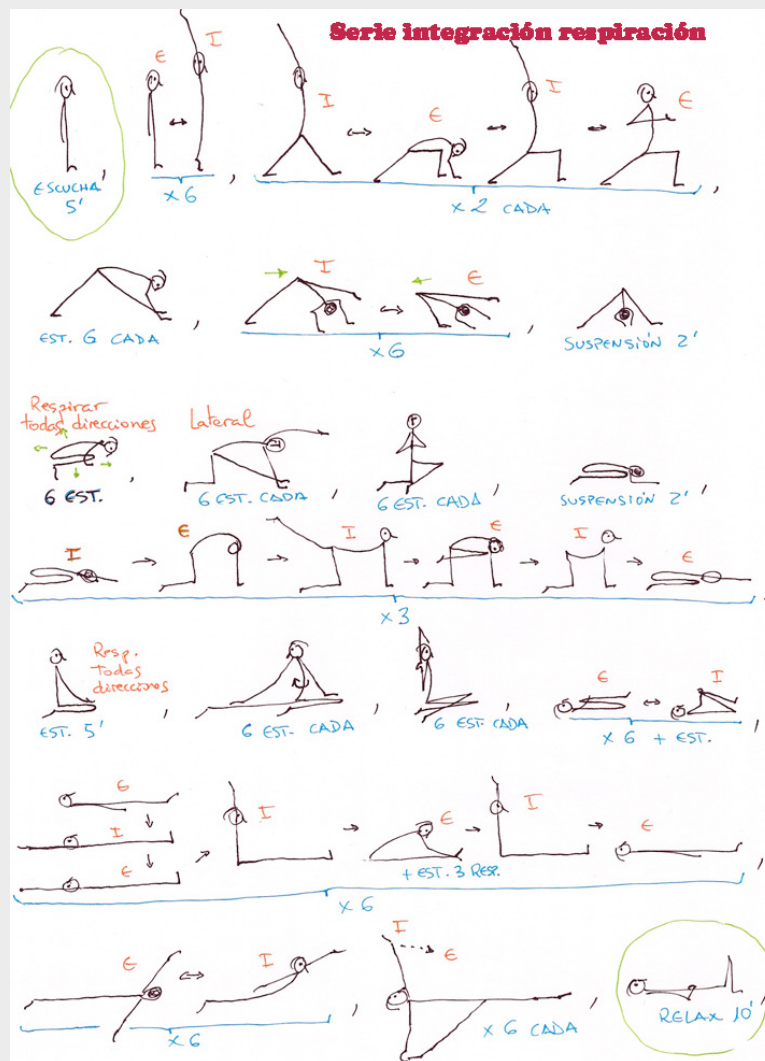 Serie integración respiración
E I
I E I E
ESCUHA
5'
x 6 ,
x 2 CADA ,
I E
EST. 6 CADA ,
x6 ,
SUSPENSIÓN 2'
Respirar
todas direcciones
Lateral
6 EST. ,
6 EST. CADA ,
6 EST. CADA ,
SUSPENSIÓN 2' ,
I E I E I E
x 3
Resp.
Todas
direcciones
E I
EST. 5' ,
6 EST. CADA ,
6 EST. CADA ,
x 6 + EST. ,
E
I
E
I E I E
+ EST. 3 RESP.
x 6
E I
I E
x6 ,
x 6 CADA ,
RELAX 10'